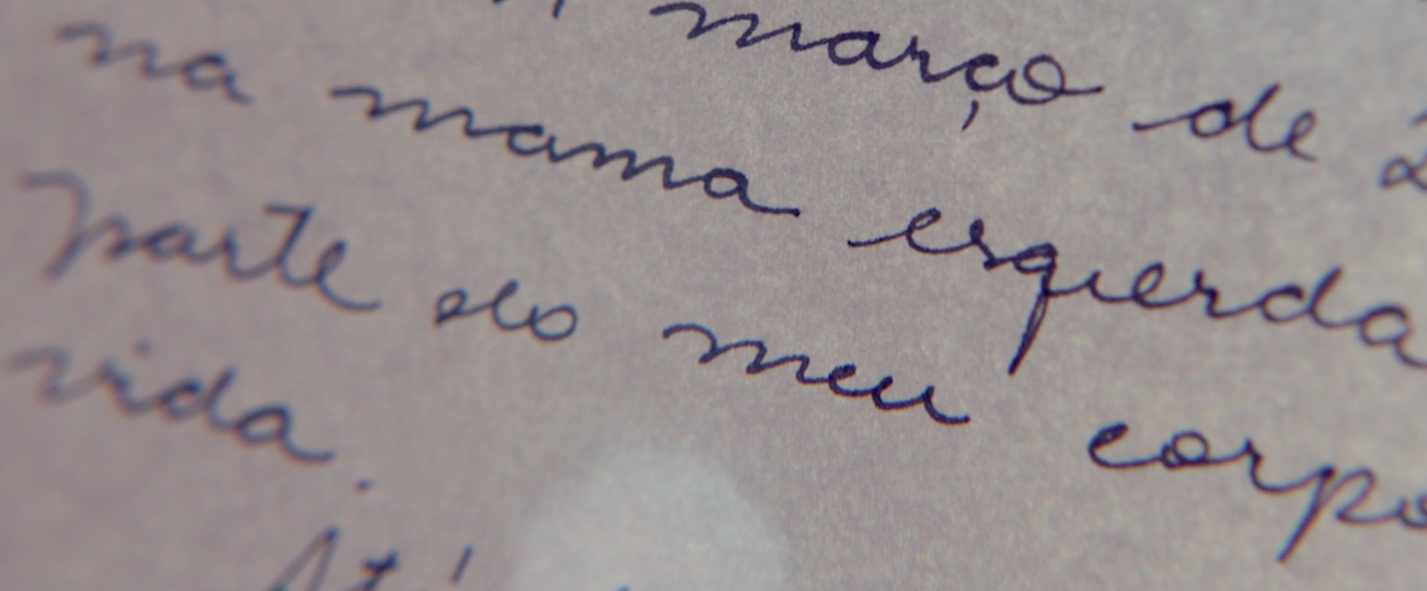 março de
na mama esquerda
parte do meu corpo
vida.